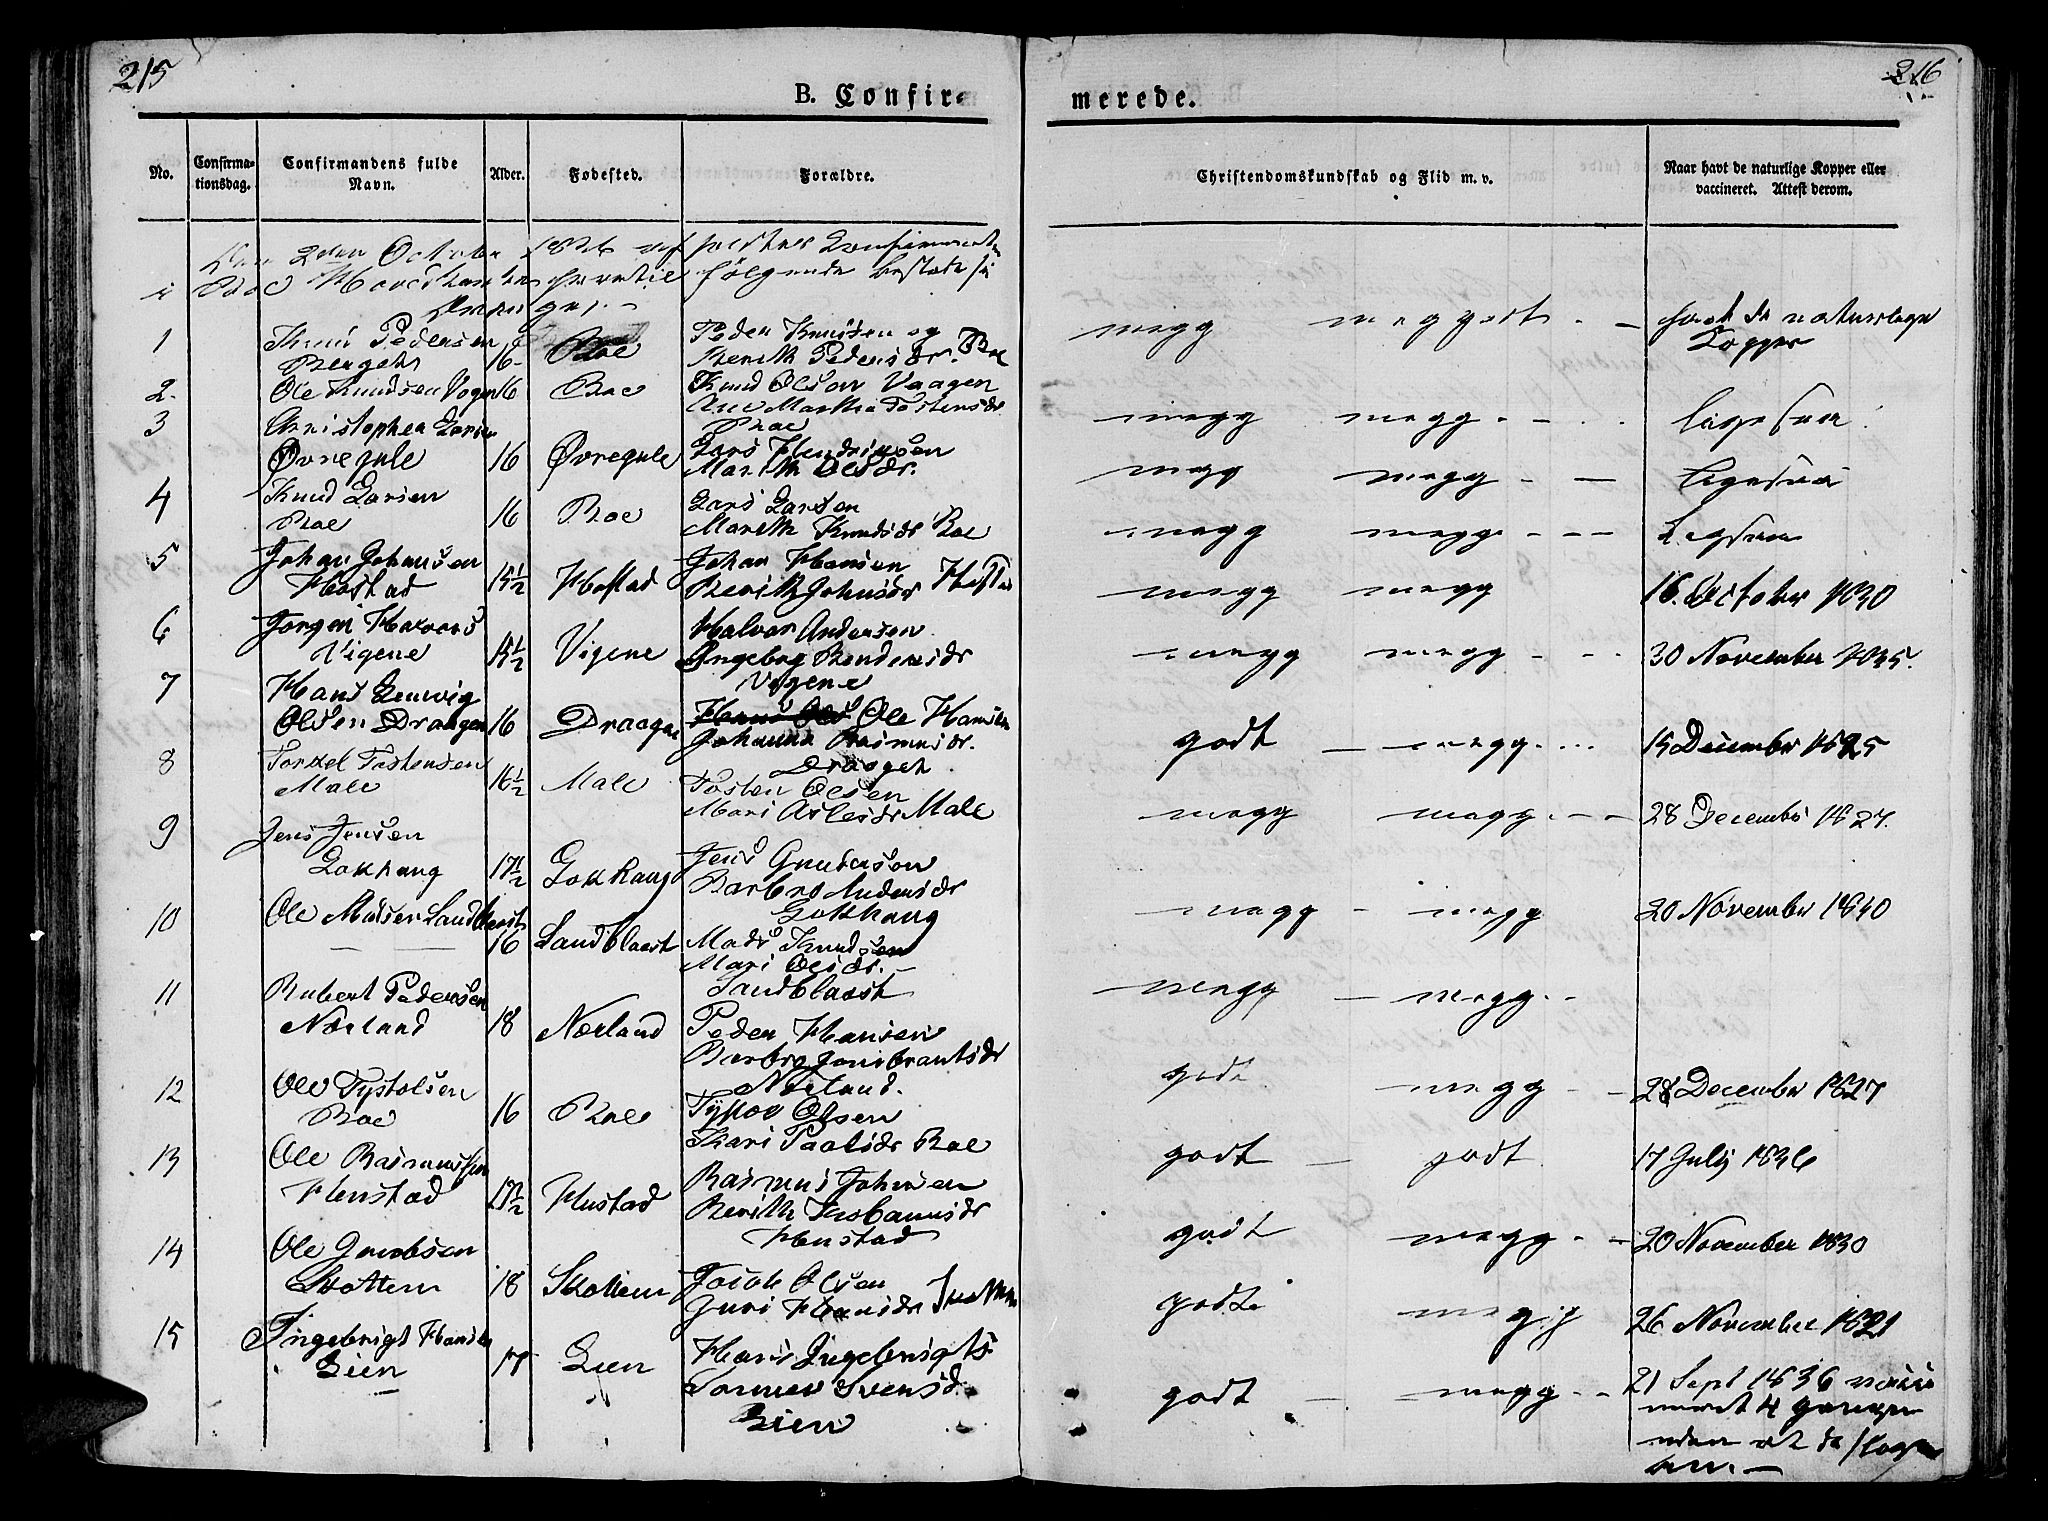 215
216
B. Confir-
merede.
No.
Confirma-
tionsdag.
Confirmandens fulde
Navn.
Alder.
Fødested.
Forældre.
Christendomskundskab og Flid m. v.
Naar havt de naturlige Kopper eller
vaccineret. Attest derom.
2den October 1836
følgende
1 Knud Pedersen
Berget 16 Boe Peder Knudsen og
Berith Pedersdr. Boe
megg meg godt havt de naturlige
Kopper
2. Ole Knudsen Vogen 16 Boe Knud Olsen Vaagen
Ane Martha Tostensdr
Boe
megg megg ligesaa
3 Christopher Larsen
Øvregule 16 Øvregule Lars Hendriksen
Marith Olsdr.
megg megg ligesaa
4 Knud Larsen
Boe 16 Boe Lars Larsen
Marith Knudsdr Boe
megg megg Ligesaa
5 Johan Johansen
Hostad 15 1/2 Hostad Johan Hansen
Berith Johnsdr
megg megg 16. October 1830
6 Jørgen Halvors
Vigene 15 1/2 Vigene Halvor Andersen
Ingeborg
Vigene
megg megg 30 November 1835.
7 Hans Ludvig
Olsen Draagen 16 Draagne Ole Hansen
Johanna Rasmusdr.
Draaget
godt megg 15 December 1825
8 Torkel Tostensen
Male 16 1/2 Male Tosten Olsen
Mari Aslesdr Male
megg megg 28 December 1827.
9 Jens Jensen
Gokhaug 17 1/2 Gokhaug Jens Gundersen
Barbro Andersdr
Gokhaug
megg megg 20 November 1830
10 Ole Madsen Sandblaast
16 Sandblaast Mads Knudsen
Mari Olsdr.
Sandblaast
megg megg
11 Rubert Pedersen
Nærland 18 Nærland Peder Hansen
Barbro
Nærland.
godt megg 28 December 1827
12 Ole Tystolsen
Boe 16 Boe Olsen
Kari Paalsdr Boe
godt godt 17 July 1836
13 Ole Rasmussen
Hustad 17 1/2 Hustad Rasmus Johnsen
Berith
Hustad
godt megg 20 November 1830
14 Ole Jacobsen
Skottem 18 Skottem Jacob Olsen
Guri Hansdr
godt megg 26 November 1821
15 Ingebrigt Hansen
Lien 17 Lien Hans Ingebrigts
Svensd.
Lien
godt megg 21 Sept 1836 vacci
neret 4 gange
uden at